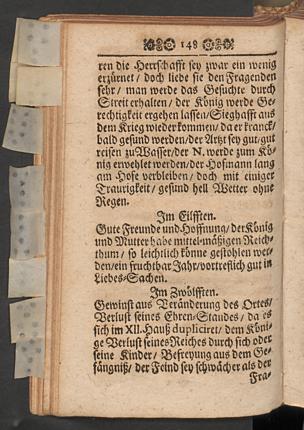 148
ren die Herrschafft sey zwar ein wenig
erzürnet / doch liebe sie den Fragenden
sehr / man werde das Gesuchte durch
Streit erhalten / der König werde Ge-
rechtigkeit ergehen lassen / Sieghafft aus
dem Krieg wiederkommen / da er kranck /
bald gesund werden / der Artzt sey gut / gut
reisen zu Wasser / der N. werde zum Kö-
nig erwehlet werden / der Hofmann lang
am Hofe verbleiben / doch mit einiger
Traurigkeit / gesund hell Wetter ohne
Regen.
Im Eilfften.
Gute Freunde und Hoffnung / der König
und Mutter habe mittel-mäßigen Reich-
thum / so leichtlich könne gestohlen wer-
den / ein fruchtbar Jahr / vortreflich gut in
Liebes-Sachen.
Im Zwölfften.
Gewinst aus Veränderung des Ortes /
Verlust seines Ehren-Standes / da es
sich im XII. Hauß dupliciret / dem Köni-
ge Verlust seines Reiches durch sich oder
seine Kinder / Befreyung aus dem Ge-
fängniß / der Feind sey schwächer als der
Fra-